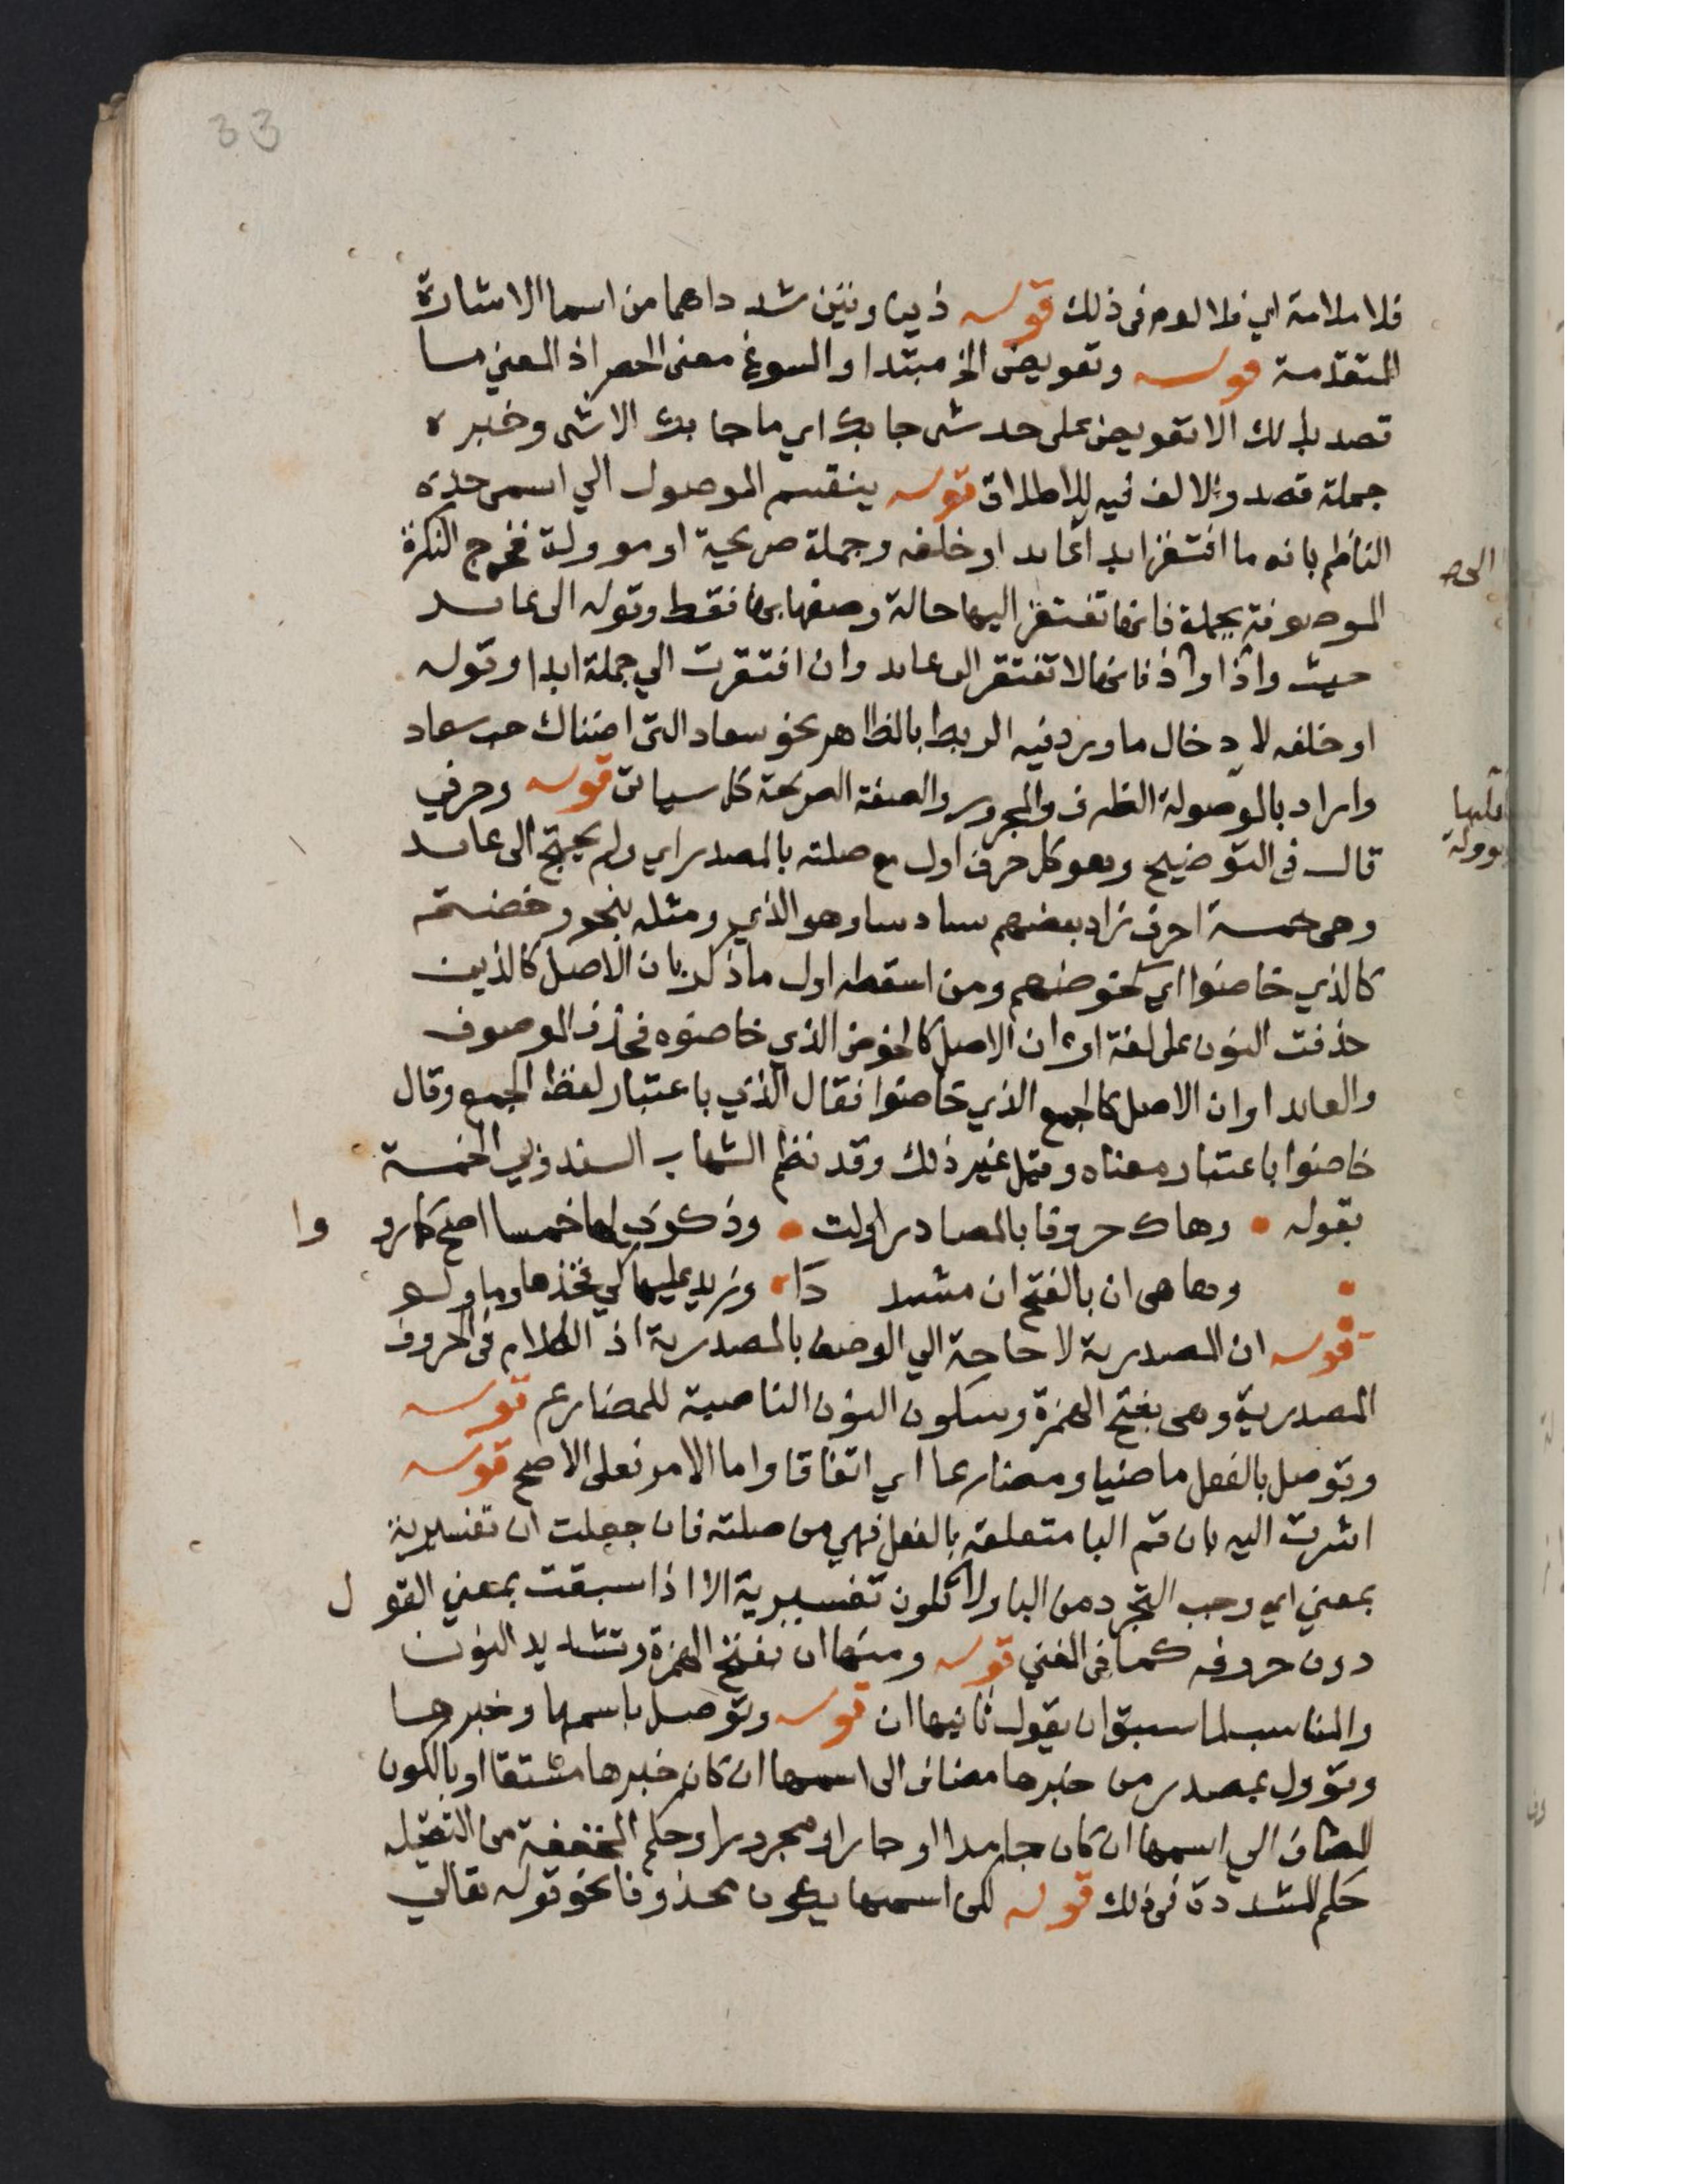 33
فلا ملامة اي فلا لوم في ذلك قوله ذين وتين شددا هما من اسما الاشارة
المتقدمة قوله وتعويض الخ مبتدا والمسوغ معنى الحصر اذ المعني ما
قصد بذلك الا تعويض على حد شي جا بك اي ما جا بك الا شي وخبره
جملة قصد والالف فيه للاطلاق قوله ينقسم الموصول الي اسمي حده
الناظم بانه ما افتقر ابدا لعايد او خلفه وجملة صريحة او موولة فخرج النكرة
الموصوفة بجملة فانها تفتقر اليها حالة وصفها بها فقط وقوله الى عايد
حيث واذا واذ فانها لا تفتقر الى عايد وان افتقرت الي جملة ابدا وقوله
او خلفه لادخال ما ورد فيه الربط بالظاهر نحو سعاد التي اضناك حب سعاد
واراد بالموصولة الظرف والمجرور والصفة الصريحة كل سياتي قوله وحرفي
قال في التوضيح وهو كل حرف اول مع صلته بالمصدر اي ولم يحتج الى عايد
وهي خمسة احرف زاد بعضهم سادسا وهو الذي ومثله بنحو وخضتم
كالذي خاضوا اي كخوضهم ومن اسقطه اول ما ذكر بان الاصل كالذين
حذفت النون على لغة او ان الاصل كالخوض الذي خاضوه فحذف الموصوف
والعايد او ان الاصل كالجمع الذي خاضوا فقال الذي باعتبار لفظ الجمع وقال
خاضوا باعتبار معناه وقيل غير ذلك وقد نظم الشهاب السندوبي الخمسة
بقوله وهاك حروفا بالمصادر اولت وذكري لها خمسا اصح كما رووا
وها هي ان بالفتح ان مشددا وزيد عليها كي فخذها وما ولو
قوله ان المصدرية لا حاجة الي الوصف بالمصدرية اذ الكلام في الحروف
المصدرية وهي بفتح الهمزة وسكون النون الناصبة للمضارع قوله
وتوصل بالفعل ماضيا ومضارعا اي اتفاقا واما الامر فعلى الاصح قوله
اشرت اليه بان قم البا متعلقة بالفعل فهي من صلته فان جعلت ان تفسيرية
بمعني اي وجب التجرد من البا ولا تكون تفسيرية الا اذا سبقت بمعني القول
دون حروفه كما في المغني قوله ومنها ان بفتح الهمزة وتشديد النون
والمناسب لما سبق ان يقول ثانيها ان قوله وتوصل باسمها وخبرها
وتوول بمصدر من خبرها مضاف الى اسمها ان كان خبرها مشتقا او بالكون
المضاف الي اسمها ان كان جامدا او جارا ومجرورا وحكم المخففة من الثقيلة
حكم المشددة في ذلك قوله لكن اسمها يكون محذوفا نحو قوله تعالي